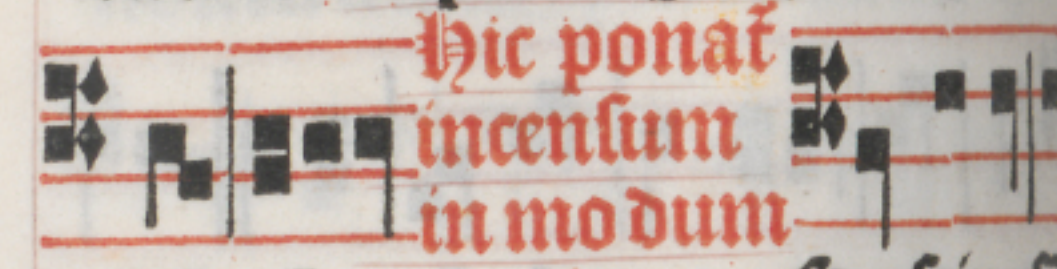 Hic ponat᷑
incenſum
in mo dum